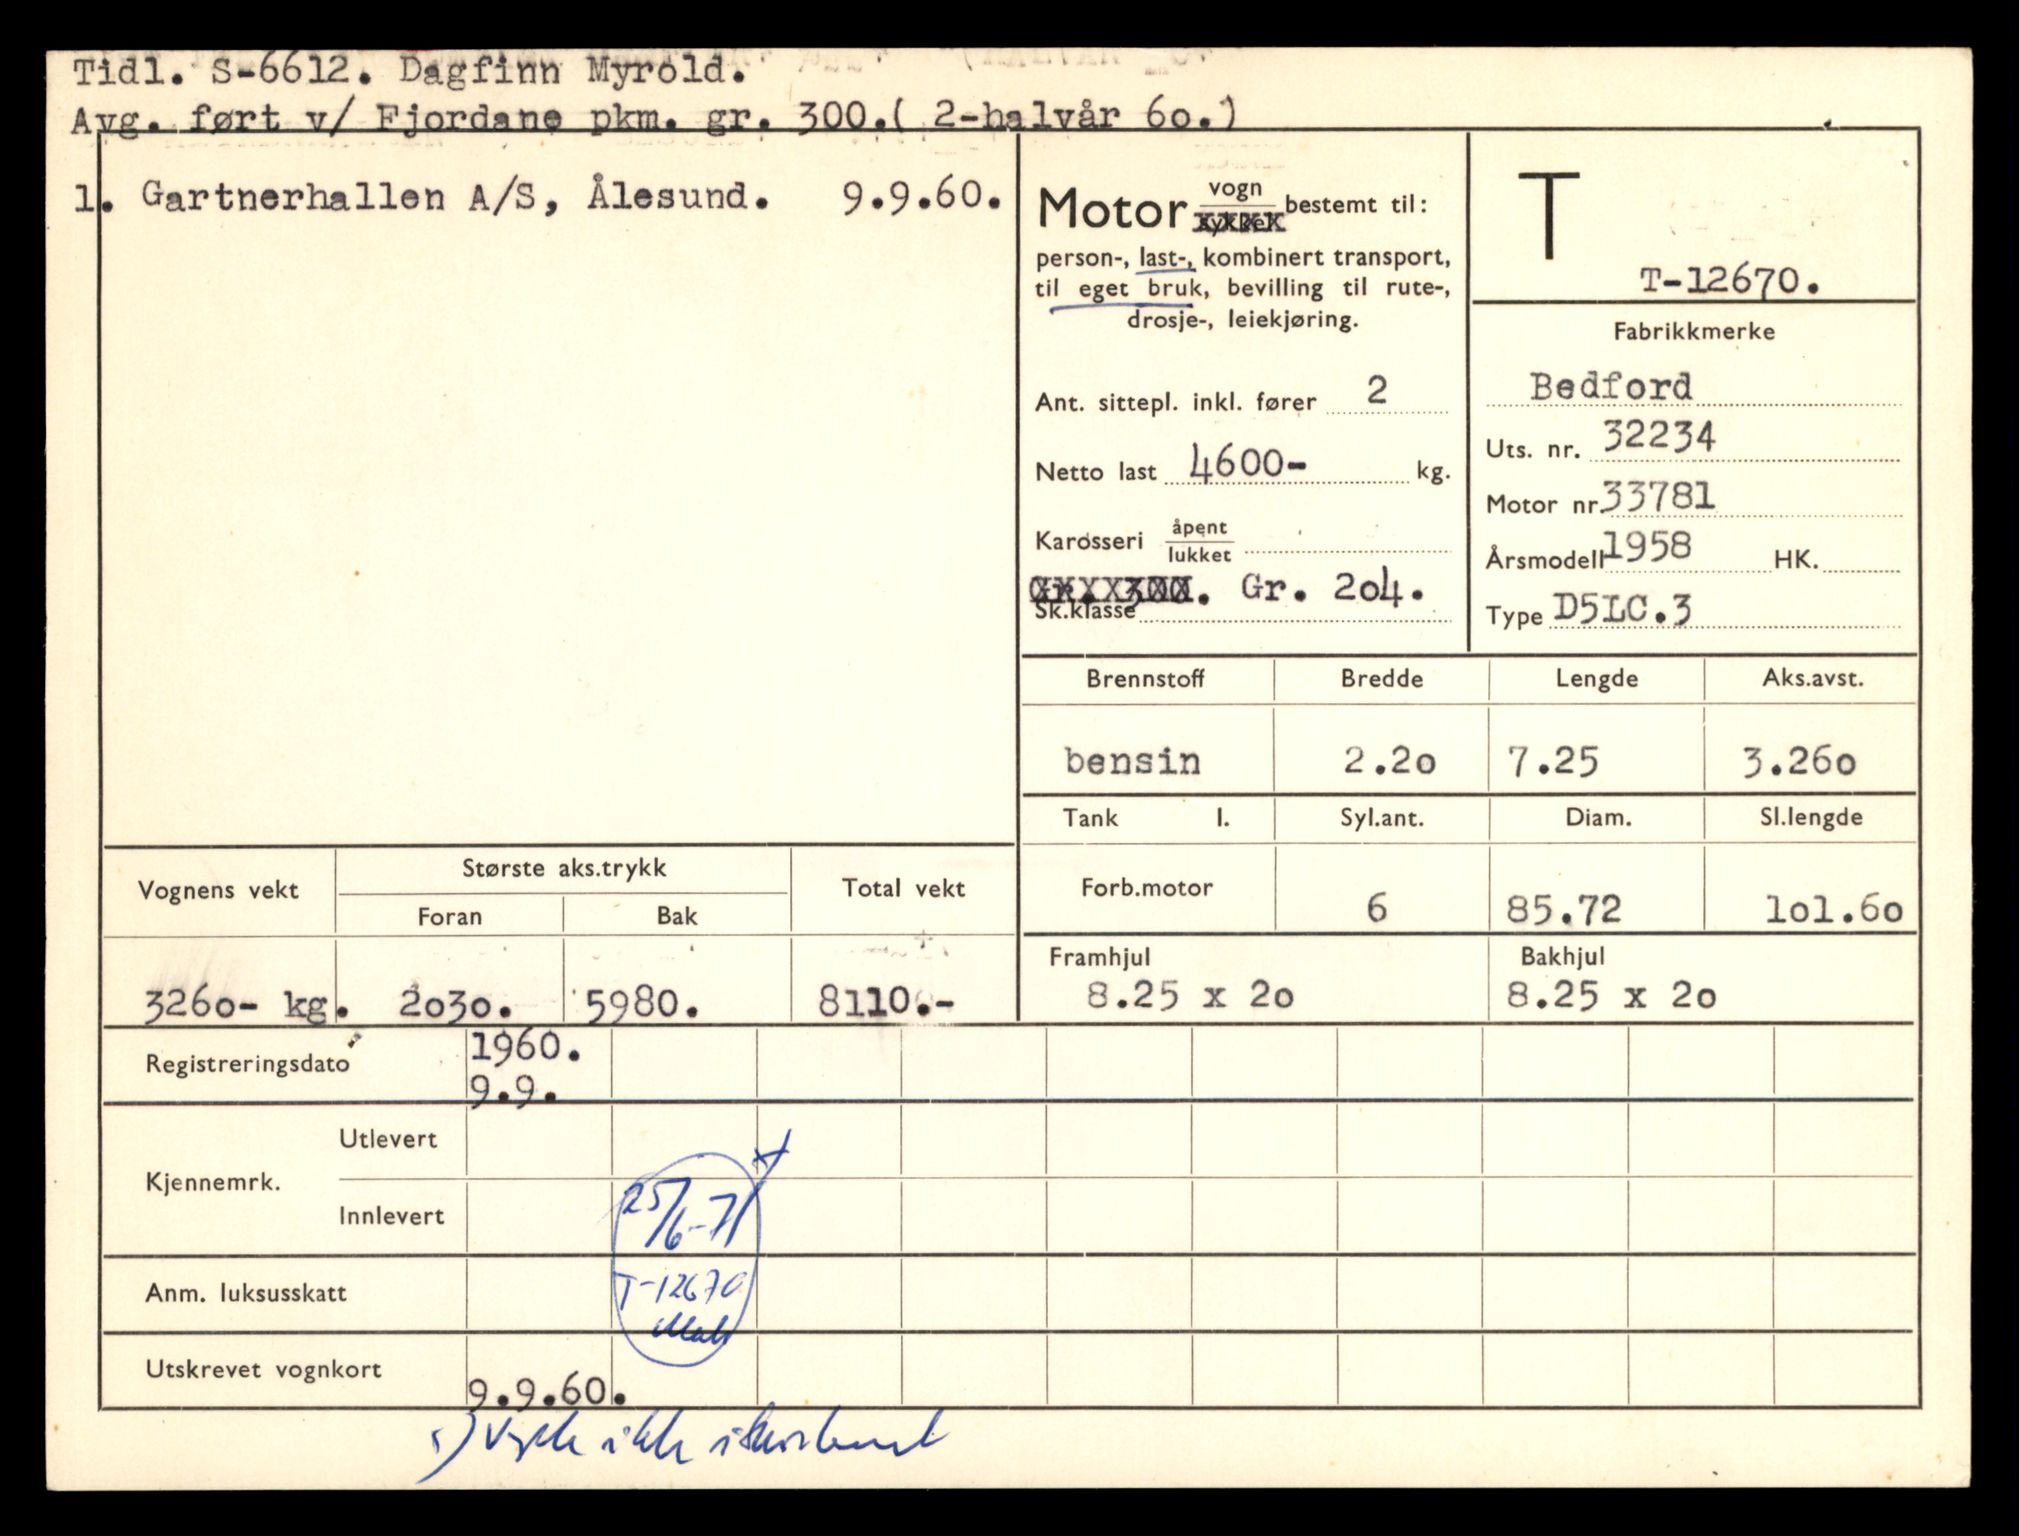 Tidl. S-6612. Dagfinn Myrold.
Avg. ført v/ Fjordane pkm. gr. 300.( 2-halvår 6o.)
1. Gartnerhallen A/S, Ålesund. 9.9.60.
Motor vogn bestemt til:
person-, last-, kombinert transport,
til eget bruk, bevilling til rute-,
drosje-, leiekjøring.
Ant. sittepl. inkl. fører 2
Netto last 4600- kg.
Karosseri åpent
lukket
Gr. 300. Gr. 2o4.
Sk.klasse
T
T-12670.
Fabrikkmerke
Bedford
Uts. nr. 32234
Motor nr. 33781
Årsmodell 1958 HK.
Type D5LC.3
Brennstoff Bredde Lengde Aks.avst.
bensin 2.2o 7.25 3.26o
Tank l. Syl.ant. Diam. Sl.lengde
Forb.motor 6 85.72 1o1.6o
Framhjul Bakhjul
8.25 x 2o 8.25 x 2o
Vognens vekt Største aks.trykk Total vekt
Foran Bak
326o- kg. 2o3o. 5980. 8110.-
Registreringsdato 1960.
9.9.
Kjennemrk. Utlevert
Innlevert 25/6-71
Anm. luksusskatt T-12670
Utskrevet vognkort 9.9.60.
ikke